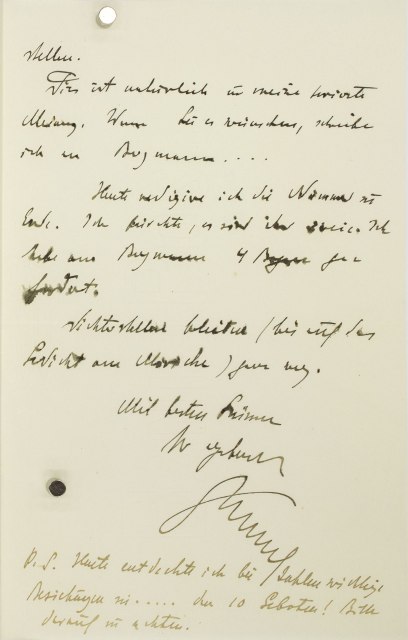 stellen.
Dies ist natürlich nur meine private
Meinung. Wenn Sie es wünschen, schreibe
ich an Bergmann....
Heute redigire ich die Nummer zu
Ende. Ich fürchte, es sind ihr zwei. Ich
habe von Bergmann 4 Bogen ge=
fordert.
bleiben (bis auf das
Gedicht von ) ganz weg.
Mit besten Grüssen
Ihr ergebener
P. S. Heute entdeckte ich bei wichtige
Beziehungen zu..... den 10 Geboten! Bitte
darauf zu achten.